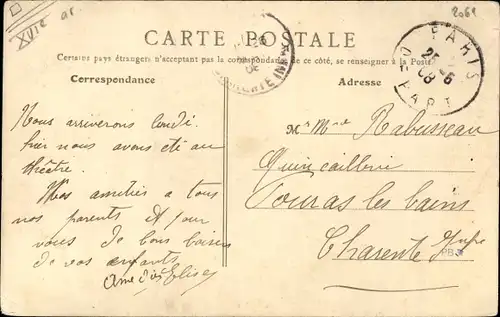 XVIe ar.
2061
CARTE POSTALE
Certains pays étrangers n'acceptant pas la correspondance de ce côté, se renseigner à la Poste
Correspondance
Adresse
PARIS
25
08
DEPART
Nous arriverons lundi
hier nous avons été au
théâtre.
Mes amitiés a tous
nos parents et pour
vous de bons baisers
de vos enfants
Mr Mme Rabusseau
Quincaillerie
Fouras les bains
Charente Infre
PB